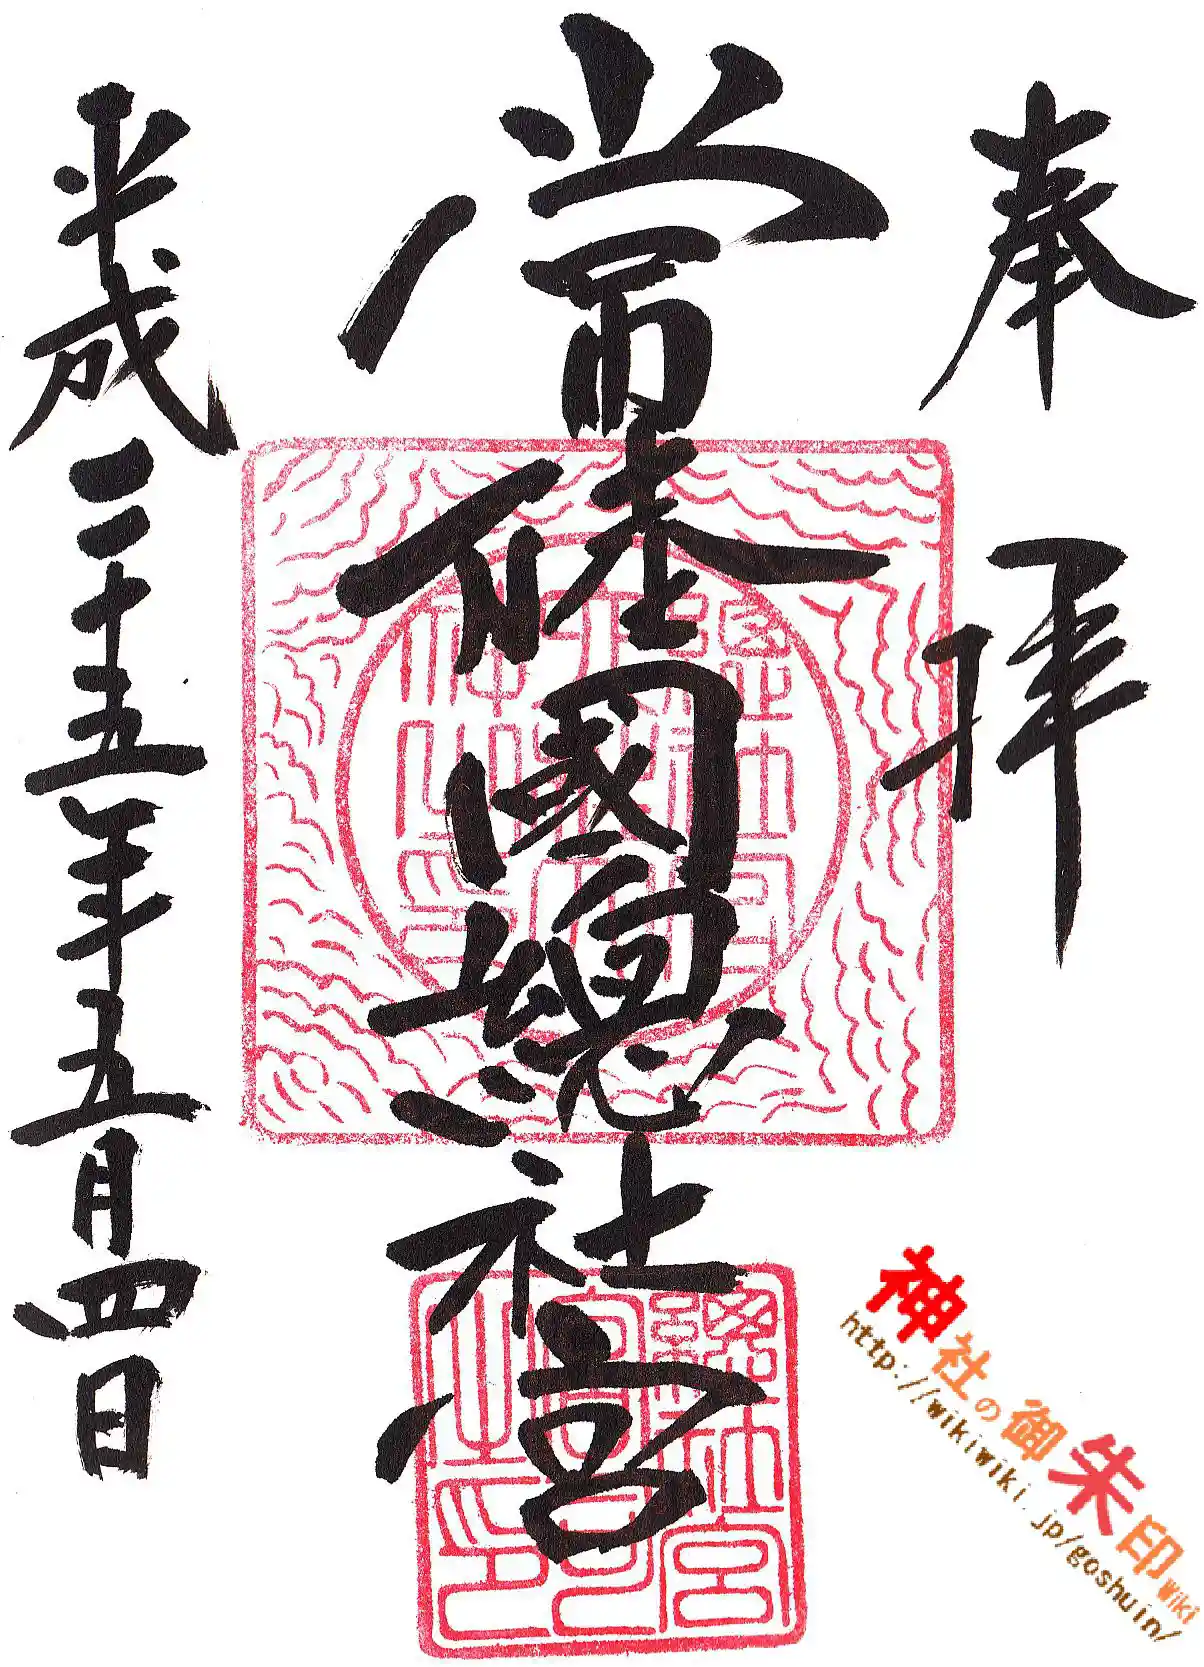 奉拝
常陸國總社宮
平成二十五年五月四日
神社の御朱印Wiki
http://wikiwiki.jp/goshuin/